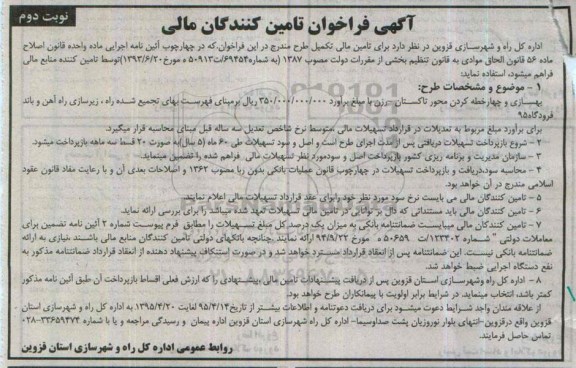 نوبت دوم
آگهی فراخوان تامین کنندگان مالی
اداره کل راه و شهرسازی قزوین در نظر دارد برای تامین مالی تکمیل طرح مندرج در این فراخوان،که در چهارچوب آئین نامه اجرایی ماده واحده قانون اصلاح
ماده ۵۶ قانون الحاق موادی به قانون تنظیم بخشی از مقررات دولت مصوب ۱۳۸۷ (به شماره۶۹۴۵۴/ت۵۰۹۱۳ ه مورخ۱۳۹۳/۶/۲۰)توسط تامین کننده منابع مالی
فراهم میشود، استفاده نماید:
۱ - موضوع و مشخصات طرح:
بهسازی و چهارخطه کردن محور تاکستان - رزن با مبلغ برآورد ۳۵۰/۰۰۰/۰۰۰/۰۰۰ ریال برمبنای فهرست بهای تجمیع شده راه ، زیرسازی راه آهن و باند
فرودگاه۹۵
برای برآورد مبلغ مربوط به تعدیلات در قرارداد تسهیلات مالی ،متوسط نرخ شاخص تعدیل سه ساله قبل مبنای محاسبه قرار میگیرد.
۲ - شروع بازپرداخت تسهیلات دریافتی پس از مدت اجرای طرح است و اصل و سود تسهیلات طی ۶۰ ماه (۵ سال)به صورت ۲۰ قسط سه ماهه بازپرداخت میشود.
۳ - سازمان مدیریت و برنامه ریزی کشور بازپرداخت اصل و سودمورد نظر تسهیلات مالی فراهم شده را تضمین مینماید.
۴ - محاسبه سود،دریافت و بازپرداخت تسهیلات در چهارچوب قانون عملیات بانکی بدون ربا مصوب ۱۳۶۲ و اصلاحات بعدی آن و با رعایت مفاد قانون عقود
اسلامی مندرج در آن خواهد بود.
۵ - تامین کنندگان مالی می بایست نرخ سود مورد نظر خود رابرای عقد قرارداد تسهیلات مالی اعلام نمایند.
۶ - تامین کنندگان مالی باید مستنداتی که دال بر توانایی در تامین مالی تسهیلات تعهد شده میباشد را برای بررسی ارائه نمایند.
۷ - تامین کنندگان مالی میبایست ضمانتنامه بانکی به میزان یک درصد کل مبلغ تسهیلات را مطابق فرم پیوست شماره ۲ آئین نامه تضمین برای
معاملات دولتی " شماره ۱۲۳۴۰۲/ت ۵۰۶۵۹ ه مورخ ۹۴/۹/۲۲ ارائه نمایند .چنانچه بانکهای دولتی تامین کنندگان منابع مالی باشند نیازی به ارائه
ضمانتنامه بانکی نیست. این ضمانتنامه پس از انعقاد قرارداد مسترد خواهد شد و در صورت استنکاف پیشنهاد دهنده از انعقاد قرارداد ضمانتنامه مذکور به
نفع دستگاه اجرایی ضبط خواهد شد.
۸ - اداره کل راه وشهرسازی استان قزوین پس از دریافت پیشنهادات تامین مالی ،پیشنهادی را که ارزش فعلی اقساط بازپرداخت آن طبق آئین نامه مذکور
کمتر باشد، انتخاب مینماید. در شرایط برابر اولویت با پیمانکاران طرح خواهد بود.
از علاقه مندان واجد شرایط دعوت میشود برای دریافت دعوتنامه و اطلاعات بیشتر از تاریخ۹۵/۴/۱۴ لغایت ۱۳۹۵/۴/۲۰ به اداره کل راه و شهرسازی استان
قزوین واقع درقزوین-انتهای بلوار نوروزیان پشت صداوسیما- اداره کل راه شهرسازی استان قزوین اداره پیمان و رسیدگی مراجعه و یا با شماره ۳۳۶۵۹۴۷۴-۰۲۸
تماس حاصل فرمایند.
روابط عمومی اداره کل راه و شهرسازی استان قزوین